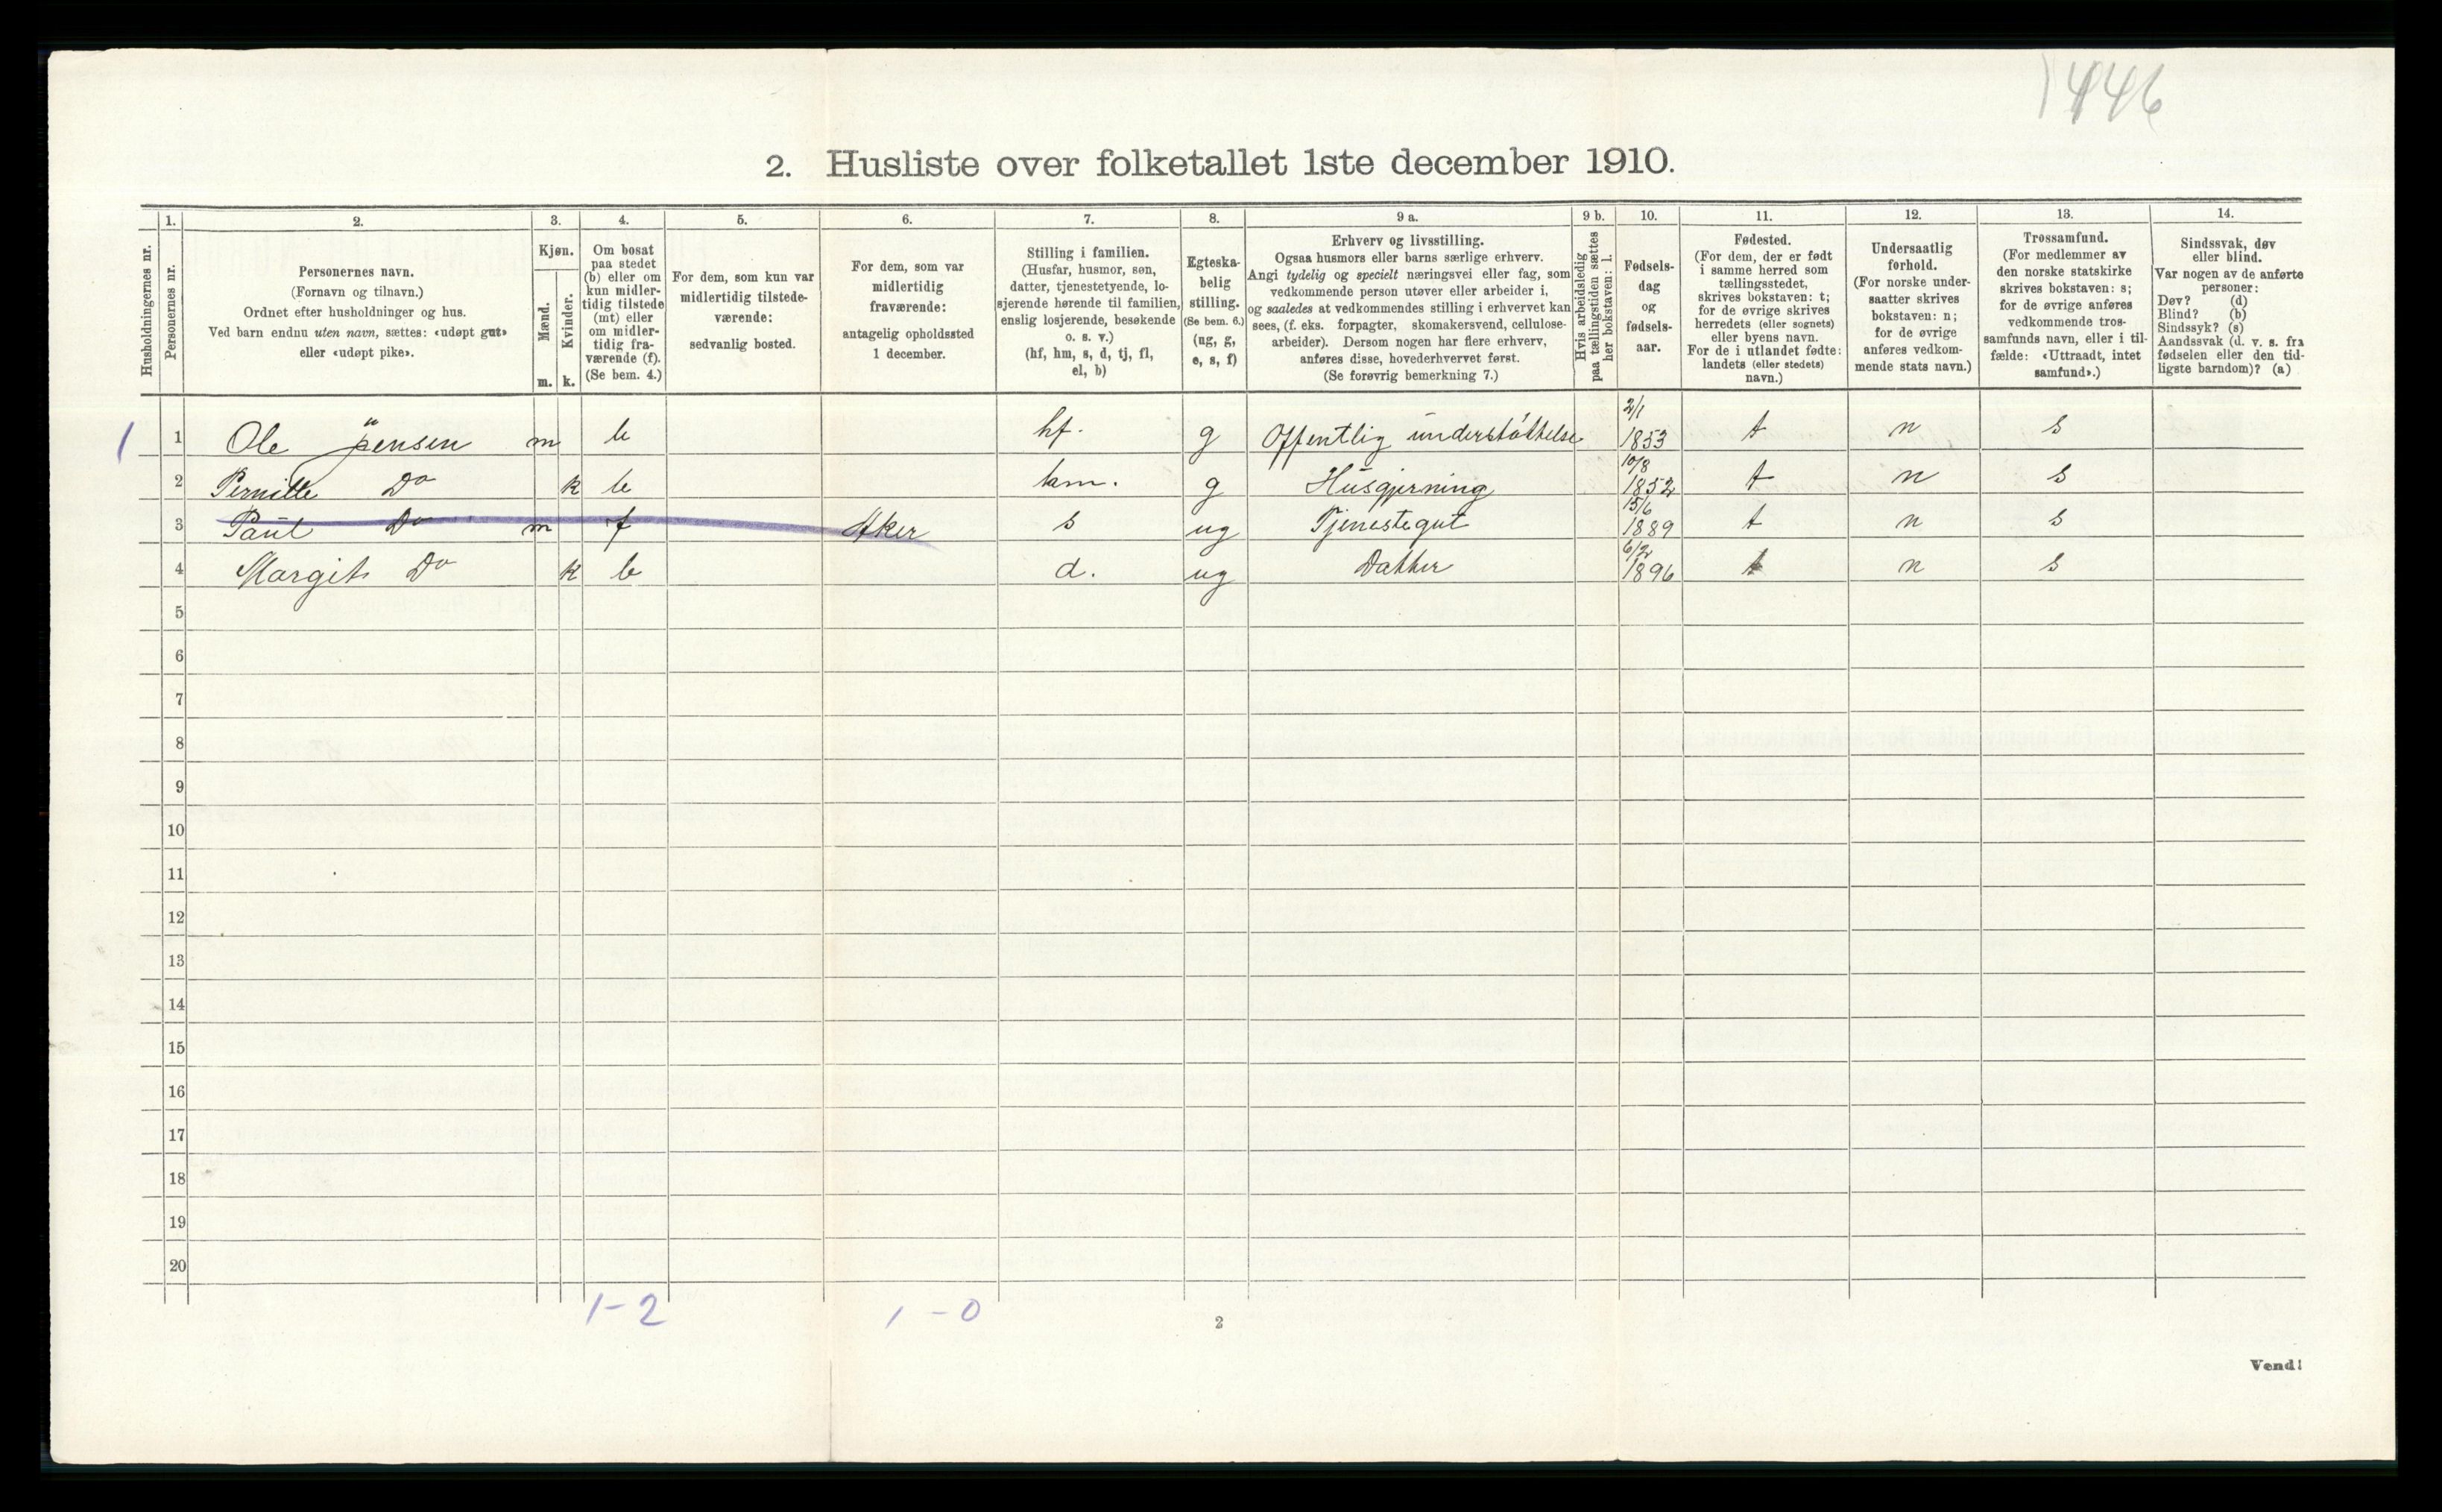 1446
2. Husliste over folketallet 1ste december 1910.
Husholdningernes nr.
1. Personernes nr.
2. Personernes navn. (Fornavn og tilnavn.) Ordnet efter husholdninger og hus. Ved barn endnu uten navn, sættes: «udøpt gut» eller «udøpt pike».
3. Kjøn. Mænd. m. Kvinder. k.
4. Om bosat paa stedet (b) eller om kun midlertidig tilstede (mt) eller om midlertidig fraværende (f). (Se bem. 4.)
5. For dem, som kun var midlertidig tilstedeværende: sedvanlig bosted.
6. For dem, som var midlertidig fraværende: antagelig opholdssted 1 december.
7. Stilling i familien. (Husfar, husmor, søn, datter, tjenestetyende, losjerende hørende til familien, enslig losjerende, besøkende o. s. v.) (hf, hm, s, d, tj, fl, el, b)
8. Egteskabelig stilling. (Se bem. 6.) (ug, g, e, s, f)
9 a. Erhverv og livsstilling. Ogsaa husmors eller barns særlige erhverv. Angi tydelig og specielt næringsvei eller fag, som vedkommende person utøver eller arbeider i, og saaledes at vedkommendes stilling i erhvervet kan sees, (f. eks. forpagter, skomakersvend, cellulosearbeider). Dersom nogen har flere erhverv, anføres disse, hovederhvervet først. (Se forøvrig bemerkning 7.)
9 b. Hvis arbeidsledig paa tællingstiden sættes her bokstaven: l.
10. Fødselsdag og fødselsaar.
11. Fødested. (For dem, der er født i samme herred som tællingsstedet, skrives bokstaven: t; for de øvrige skrives herredets (eller sognets) eller byens navn. For de i utlandet fødte: landets (eller stedets) navn.)
12. Undersaatlig forhold. (For norske undersaatter skrives bokstaven: n; for de øvrige anføres vedkommende stats navn.)
13. Trossamfund. (For medlemmer av den norske statskirke skrives bokstaven: s; for de øvrige anføres vedkommende trossamfunds navn, eller i tilfælde: «Uttraadt, intet samfund».)
14. Sindssvak, døv eller blind. Var nogen av de anførte personer: Døv? (d) Blind? (b) Sindssyk? (s) Aandssvak (d. v. s. fra fødselen eller den tidligste barndom)? (a)
1 1 Ole Jensen m b hf. g Offentlig understøttelse 2/1 1853 t n s
2 Pernille Do k b hm. g Husgjerning 10/8 1852 t n s
3 Paul Do m f Aker s ug Tjenestegut 15/6 1889 t n s
4 Margit Do k b d. ug Datter 6/2 1896 t n s
5
6
7
8
9
10
11
12
13
14
15
16
17
18
19
20
1-2 1-0
2
Vend!